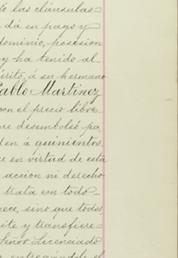 de las cláusulas
dá en pago y
dominio, posesion
y ha tenido al
á su hermano
Pablo Martinez
con el precio libre
desembolsó pa
den á quinientos
ce en virtud de esta
accion ni derecho
trata en todo
nece, sino que todos
cite y transfiere
Señor Licenciado
entregándole el